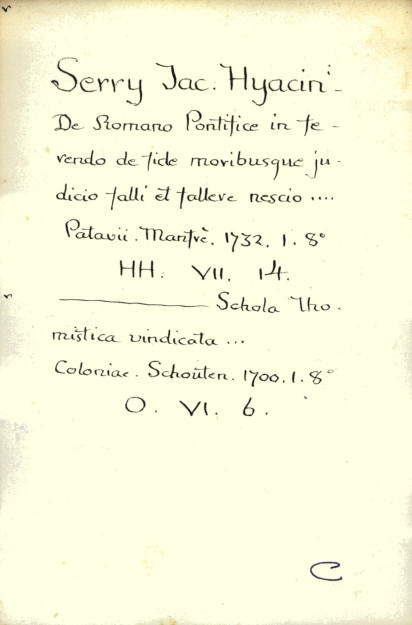 Serry Jac. Hyacin-
De Romano Pontifice in fe-
rendo de fide moribusque ju-
dicio falli et fallere nescio ....
Patavii. Manfrè. 1732. 1. 8°
HH. VII. 14.
——— Schola Tho-
mistica vindicata ...
Coloniae. Schouten. 1700. 1. 8°
O. VI. 6.
C